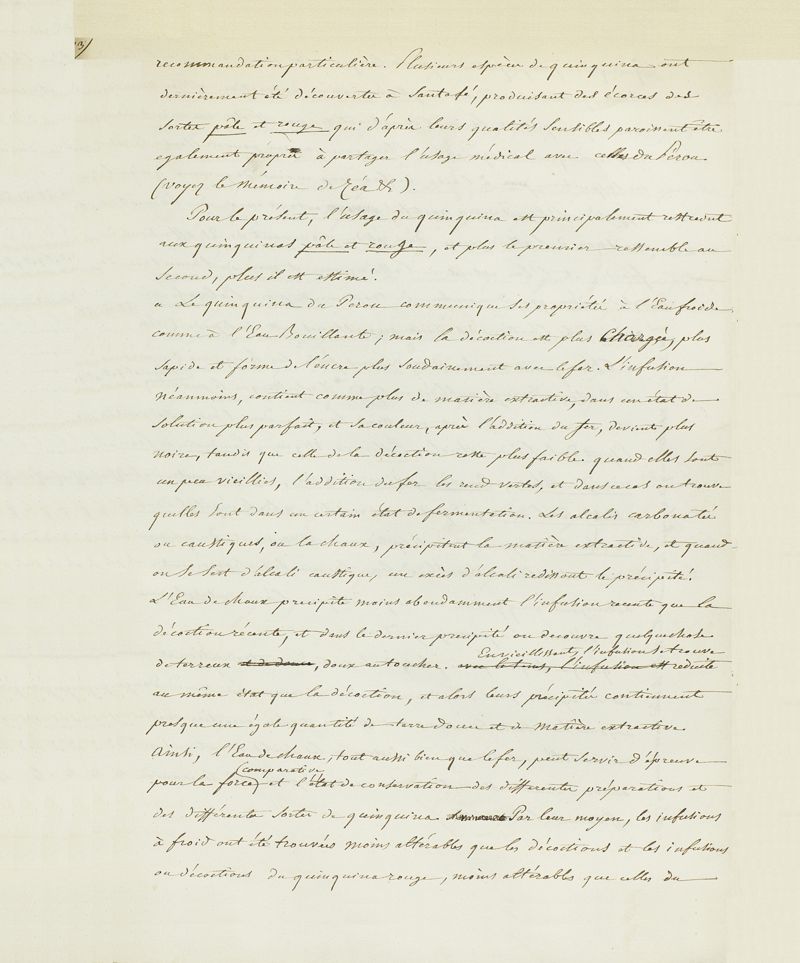 recommandation particulière. Plusieurs espèces de quinquina ont
dernièrement été découvertes à Santafé, produisant des écorces des
sortes pâle et rouge qui d'après leurs qualités sensibles paroissent être
egalement propres à partager l'usage médical avec celles du Pérou
(voyez le Mémoire de Zéa &).
Pour le présent, l'usage du quinquina est principalement restreint
aux quinquinas pâle et rouge, et plus le premier ressemble au
second, plus il est estimé.
a Le quinquina du Perou communique ses propriétés à l'Eau froide
comme à l'Eau Bouillante; mais la décoction est plus chargée, plus
sapide et forme de l'encre plus soudainement avec le fer. L'infusion
néanmoins, contient comme plus de matière extractive, dans un état de
solution plus parfait, et sa couleur, après l'addition du fer, devient plus
noire, tandis que celle de la décoction reste plus faible. quand elles sont
un peu vieillies, l'addition du fer les rend vertes, et dans ce cas on trouve
qu'elles sont dans un certain état de fermentation. Les alcalis carbonatés
ou caustiques, ou la chaux, précipitent la matière extractive, et quand
on se sert d'alcali caustique, un excès d'alcali redissout le précipité.
L'Eau de chaux precipite moins abondamment l'infusion recente que la
décoction récente, et dans le dernier precipité on decouvre quelque chose
En vieillissant, l'infusion se trouve
de terreux et de doux, doux au toucher. avec le tems, l'infusion est reduite
au même état que la décoction, et alors leurs précipités contiennent
presque une égale quantité de terre douce et de matière extractive
Ainsi, l'Eau de chaux, tout aussi bien que le fer, peut servir d'épreuve
(comparative
pour la force) et l'état de conservation des différentes préparations et
des différentes sortes de quinquina. Par leur moyen, les infusions
à froid ont été trouvées moins altérables que les décoctions et les infusions
ou décoctions du quinquina rouge, moins altérables que celles du